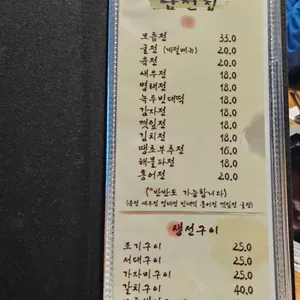 모듬전 33.0
굴전 (계절메뉴) 20.0
육전 20.0
새우전 18.0
명태전 18.0
녹두빈대떡 18.0
감자전 18.0
깻잎전 18.0
김치전 18.0
땡초부추전 16.0
해물파전 18.0
홍어전 20.0
(*반반도 가능합니다)
생선구이
조기구이 25.0
서대구이 25.0
가자미구이 25.0
갈치구이 40.0